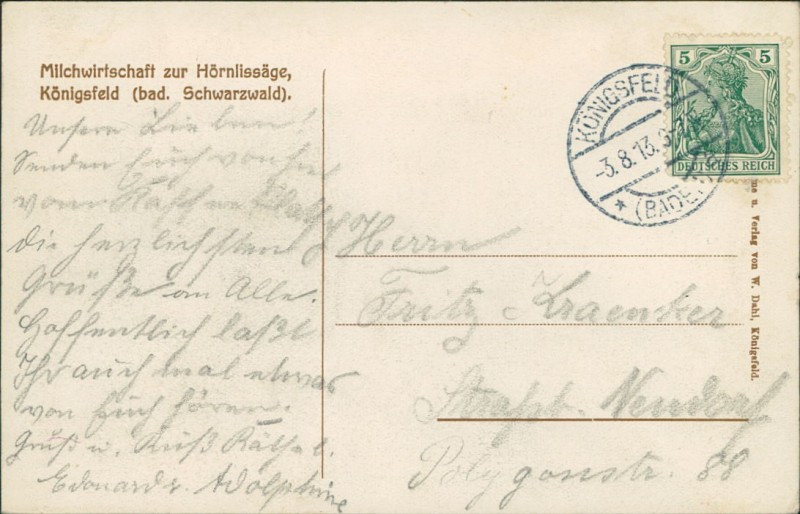 Milchwirtschaft zur Hörnlissäge,
Königsfeld (bad. Schwarzwald).
Unsere Lieben!
Senden Euch von
vom
die herzlichsten
Grüße an Alle.
Hoffentlich laßt
Ihr auch mal etwas
von Euch hören.
Gruß u. Kuß
Edouard u. Adolphine
5 5
DEUTSCHES REICH
KÖNIGSFELD
-3.8.13.
(BADEN)
Herrn
Fritz Kraenker
Straßb. Neudorf
Polygonstr. 88
u. Verlag von W. Dahl, Königsfeld.